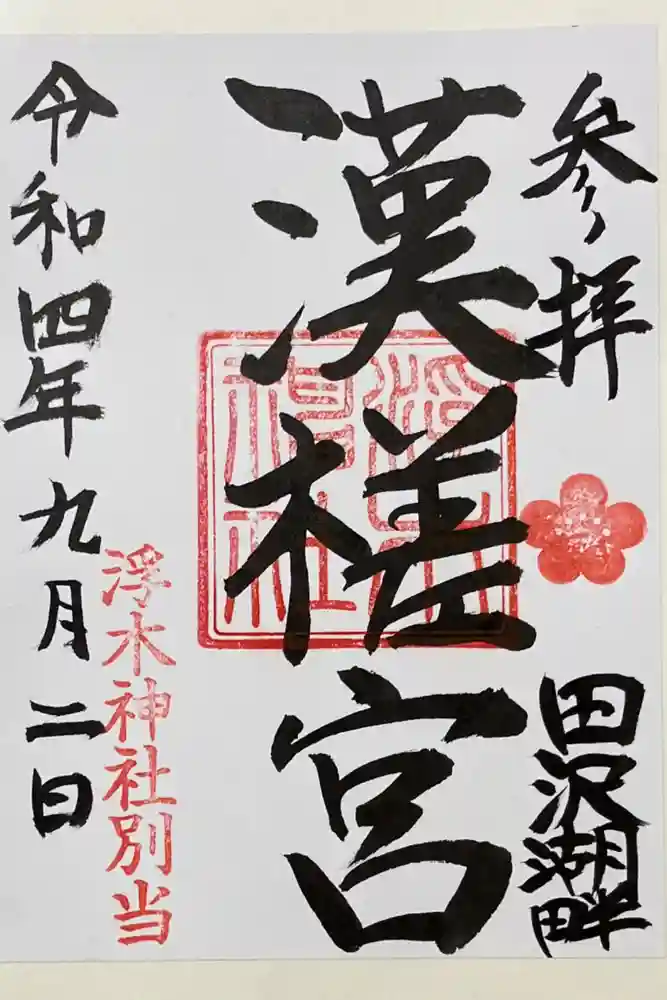 参拝
田沢湖畔
漢槎宮
浮木神社
浮木神社別当
令和四年九月二日